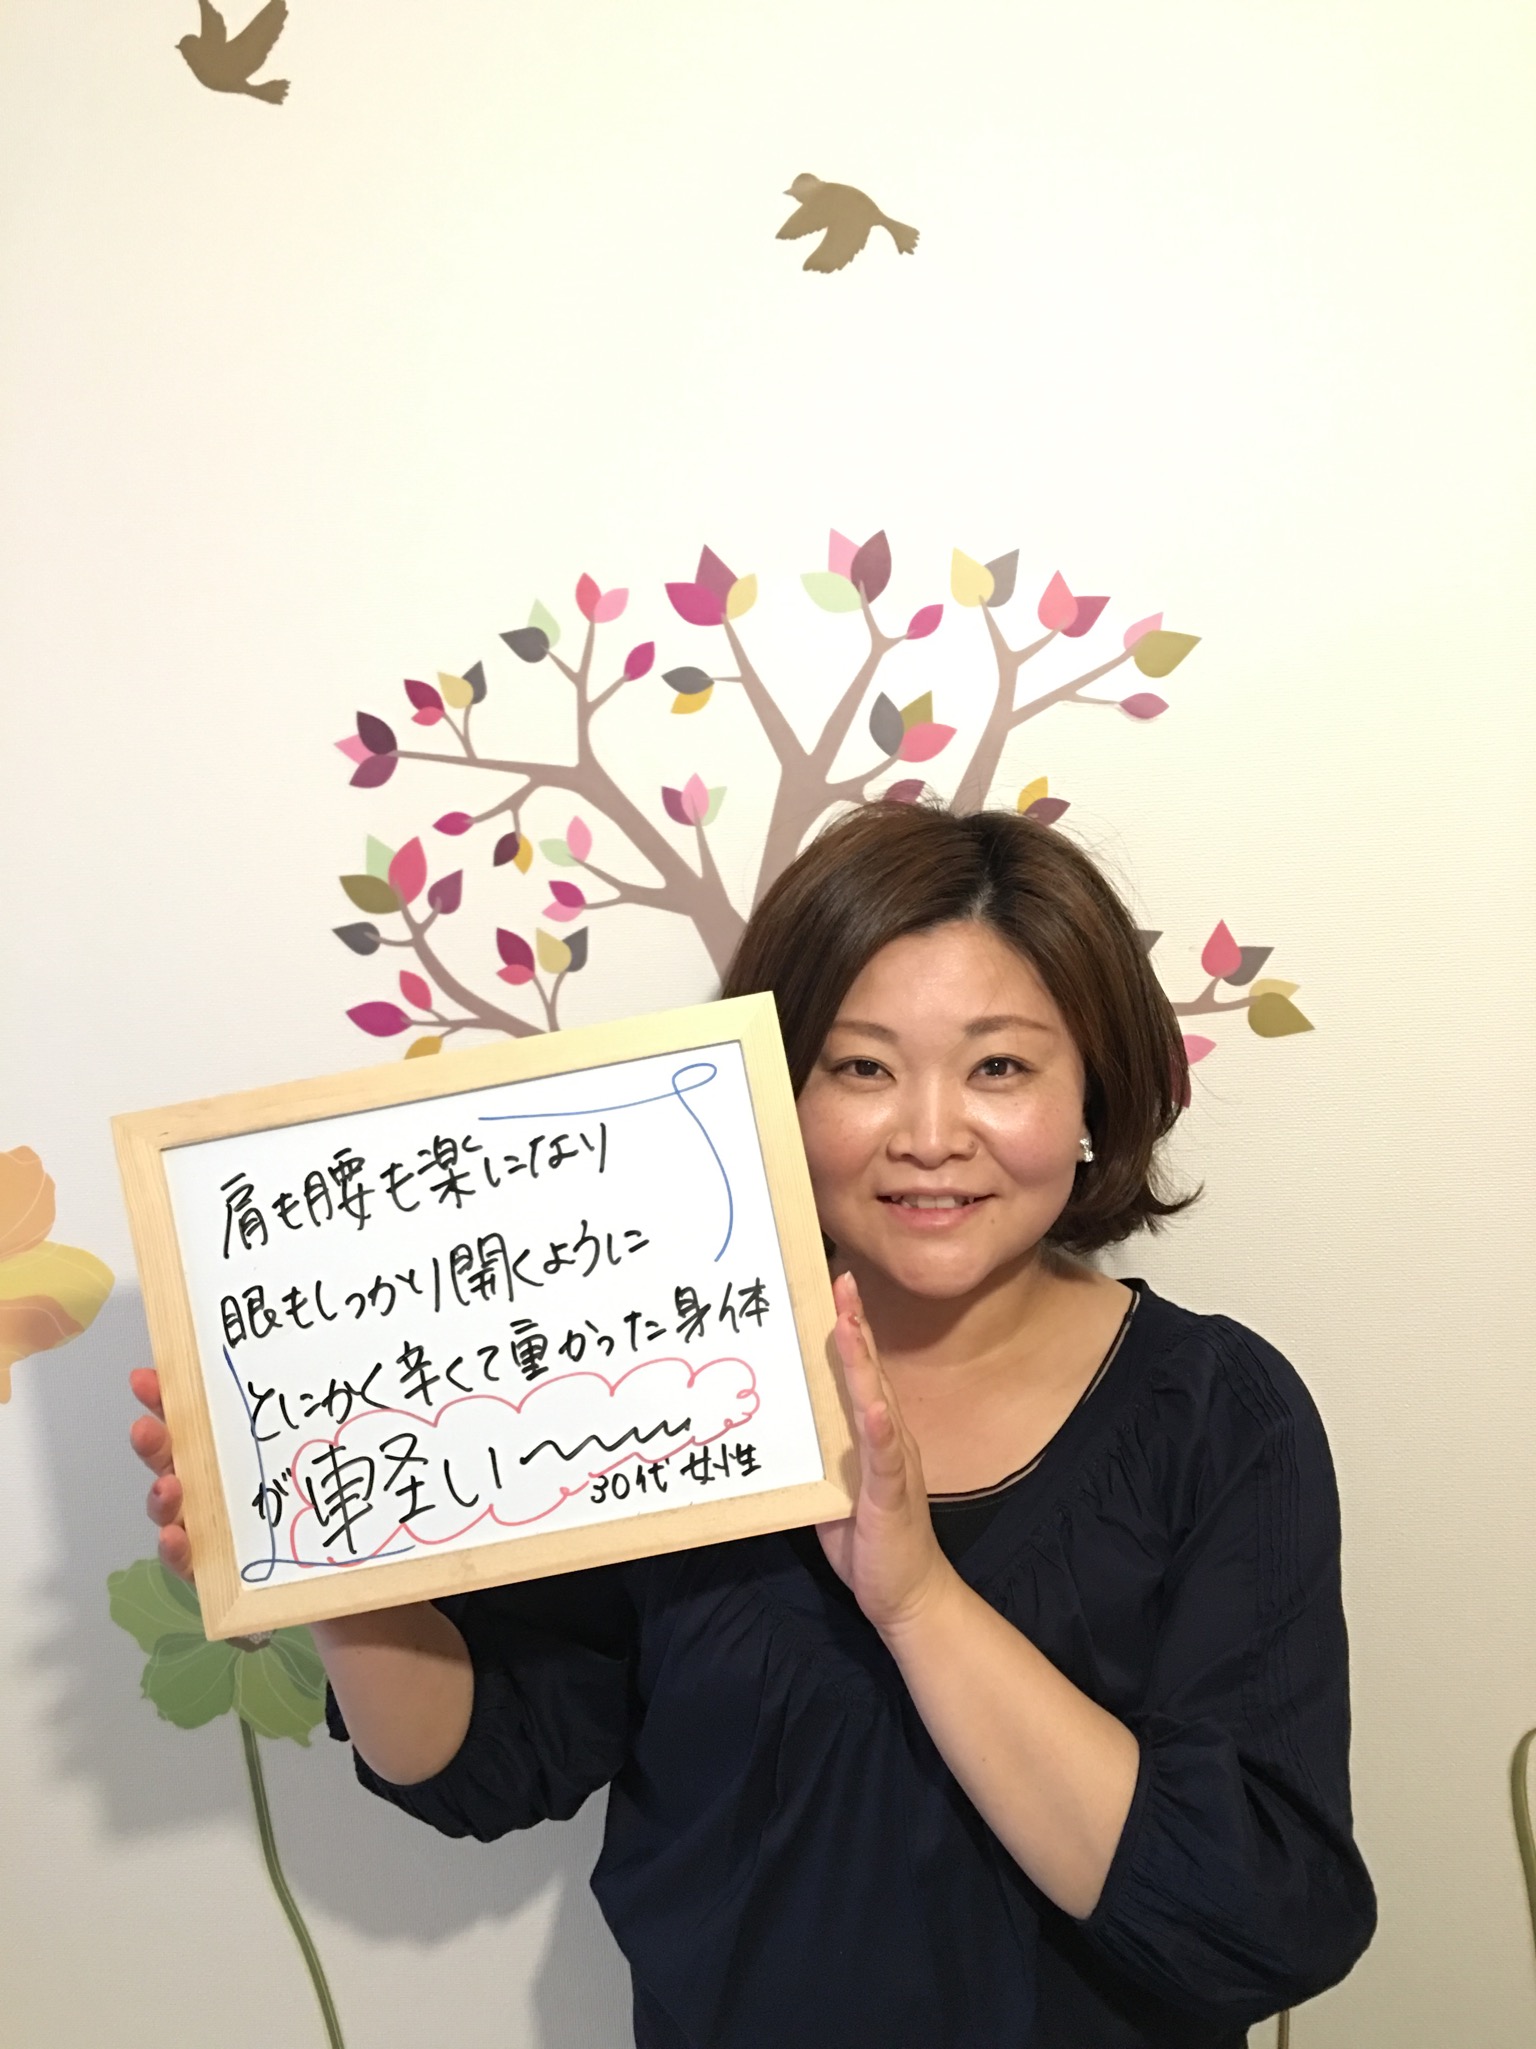 肩も腰も楽になり
眼もしっかり開くように
とにかく辛くて重かった身体
が軽い〜〜〜
30代 女性